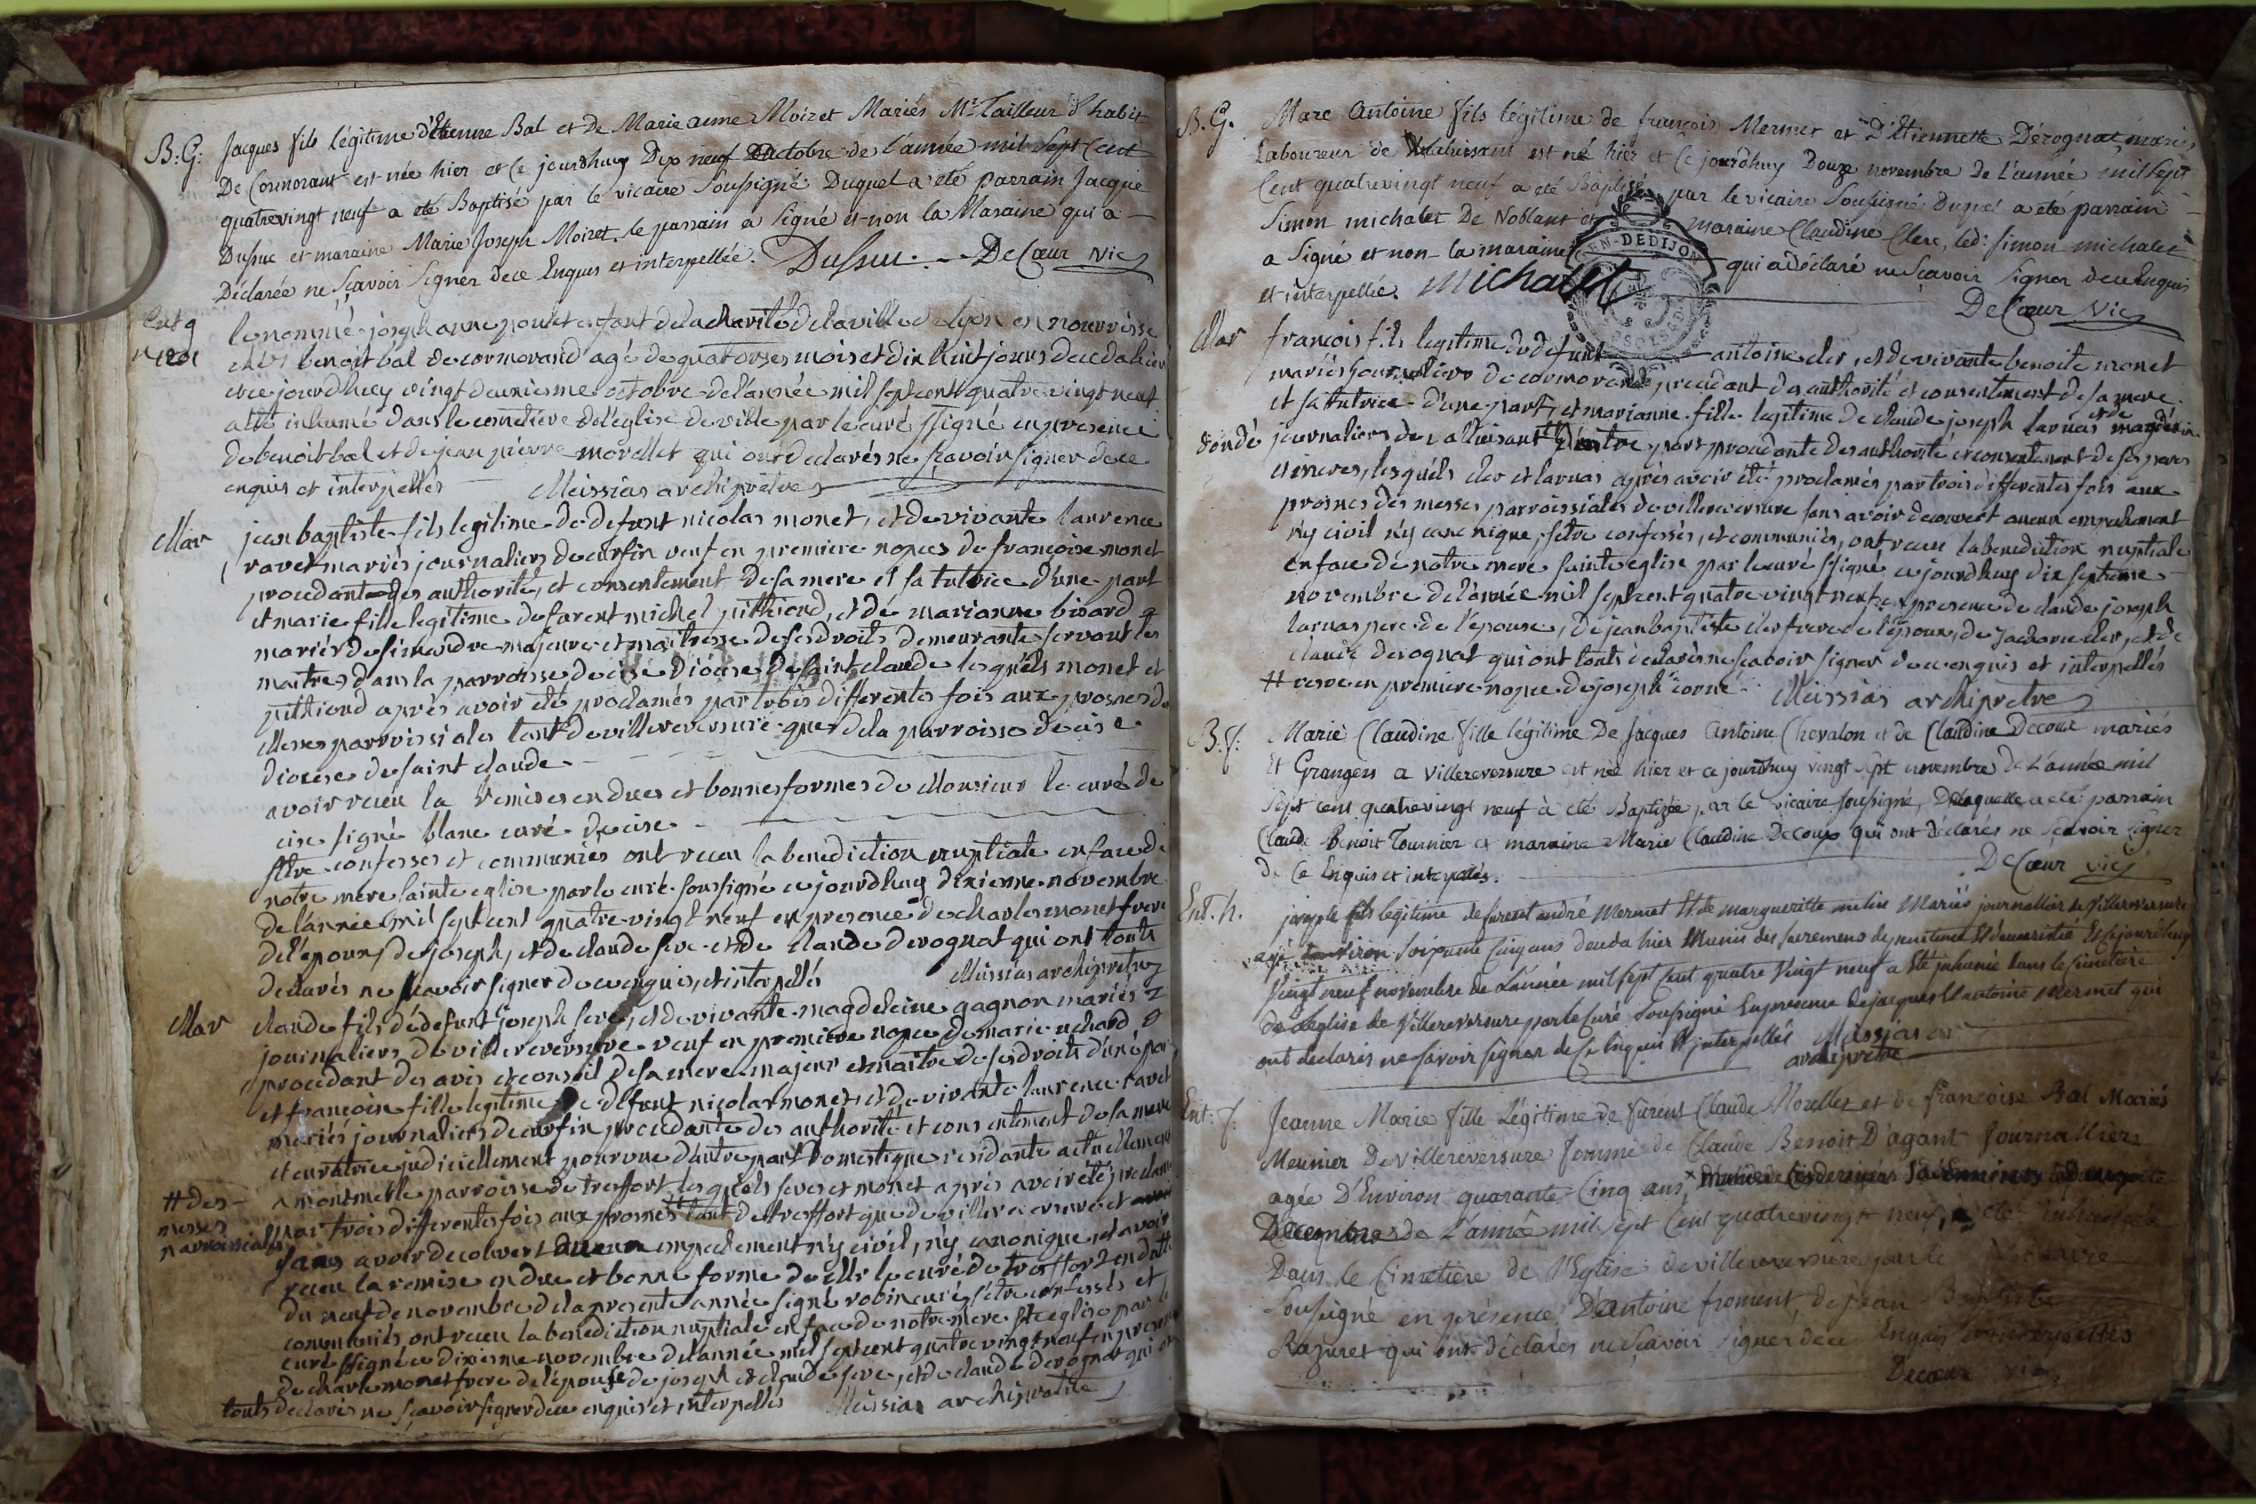 B. G. Jacques fils légitime d'Etienne Bal et de Marie aime Moiret Mariés Mr. Tailleur d'habit
De Cormorant est née hier et Ce jourdhuy Dix neuf octobre de l'année mil Sept Cent
quatrevingt neuf a eté Baptisé par le vicaire Soussigné Duquel a eté parrain Jacque
Dufour et maraine Marie Joseph Moiret. le parrain a Signé et non la Maraine qui a
Déclarée ne Sçavoir Signer De ce Enquis et interpellée. De Cœur Vic
le nommé joseph anne enfant de la charité de la ville de lyon en nourrisse
chés benoit bal de cormorand agé de quatorzes mois et dix huit jours decedé hier
et ce jourdhuy vingt deuxiesme octobre de l'année mil sept cent quatre vingt neuf
a eté inhumé dans le cemetiere de l'église de ville par le curé ssigné en presence
de benoit bal et de jean pierre morellet qui ont declarés ne sçavoir signer de ce
enquis et interpellés Messias archiprêtre
Mar jean baptiste fils legitime de defunt nicolas monet, et de vivante laurence
ravet mariés journaliers de curfin veuf en premiere nopces de françoise monet
procedant des authorité, et consentement de sa mere et sa tutrice d'une part
et marie fille legitime de furent michel pithiond, et de marianne birard
mariés de simandre majeure et maitresse de ses droits demeurante servant les
maitres dans la parroisse de cise diocese de saint claude lesquels monet et
pithiond après avoir été proclamés par trois differentes fois aux prosnes des
Messes parroissiales tant de villereversure que de la parroisse de cise
diocese de saint claude
avoir receu la remises en dues et bonnes formes de Monsieur le curé de
cise signé blanc curé de cise
s'etre confesses et communiés ont receu la benediction nuptiale en face de
notre mere sainte eglise par le curé soussigné ce jourdhuy dixieme novembre
de l'année mil sept cent quatre-vingt neuf en presence de charles monet frere
de l'epoux, de joseph, et de claude seve et de claude derognat qui ont touts
declarés ne sçavoir signer de ce enquis, et interpellés Messias archiprêtre
Mar claude fils de defunt joseph seve, et de vivante magdeleine gagnon mariés
journaliers de villereversure veuf en premiere nopce de marie uchard,
procedant des avis et conseil de sa mere majeur et maitre de ses droits d'une part
et françoise fille legitime de defunt nicolas monet, et de vivante laurence ravet
mariés journaliers de curfin procedante des authorité et consentement de sa mere
et curatrice judiciellement pourvue d'autre part Domestique residante actuellement
a montmerle parroisse de treffort lesquels seves et monet après avoir été proclamé
par trois differentes fois aux prosnes # tant de treffort que de villereversure et
# des messes parroissiales
sans avoir decouvert aucun empechement n'y civil, n'y canonique, et avoir
receu la remise en due et bonne forme de Mr le curé de treffort en datte
du neuf de novembre de la presente année signé robin curé, s'etre confessés et
communiés ont receu la benediction nuptiale en face de notre mere Ste eglise par le
curé ssigné ce dixiesme novembre de l'année mil sept cent quatre vingt neuf en presence
de charle monet frere de l'epouse de joseph et claude seve, et de claude derognat qui
touts declarés ne sçavoir signer de ce enquis et interpellés Messias archiprêtre
B. G. Marc Antoine fils légitime de françois Mermet et D'Etiennette Dérognat mariés
Laboureur de est né hier et Ce jourdhuy Douze novembre De L'année mil Sept
Cent quatrevingt neuf a eté Baptisé par le vicaire Soussigné Duquel a eté parrain
Simon michalet De Noblant et maraine Claudine Clerc, led: Simon michalet
a Signé et non la maraine qui a Déclaré ne Sçavoir Signer de ce Enquis
et interpellée. Michalet
EN-DEDIJON
De Cœur Vic
Mar françois fils legitime de defunt antoine cler, et de vivante benoite monet
mariés journaliers de cormorand procedant des authorité et consentement de sa mere
et sa tutrice d'une part, et marianne fille legitime de claude joseph larnas et de
journaliers de d'autre part procedante des authorité et consentement de ses peres
et meres, lesquels cler et larnas après avoir été proclamés par trois differentes fois aux
prosnes des messes parroissiales de villereversure sans avoir decouvert aucun empechement
n'y civil n'y canonique, s'etre confessés, et communiés, ont receu la benediction nuptiale
en face de notre mere sainte eglise par le curé ssigné ce jourdhuy dix septieme
novembre de l'année mil sept cent quatre vingt neuf en presence de claude joseph
larnas pere de l'epouse, de jean baptiste cler frere de l'epoux, de cler, et de
claude derognat qui ont touts declarés ne scavoir signer de ce enquis et interpellés
# vesve en premiere nopce de joseph Messias archiprêtre
B. f. Marie Claudine fille légitime De Jacques Antoine Chevalon et de Claudine Decour mariés
Et Grangers a Villereversure est née hier et ce jourdhuy vingt sept novembre De L'année mil
Sept cent quatrevingt neuf à eté Baptizée par le vicaire soussigné, De laquelle a eté parrain
Claude Benoit Tournier et maraine Marie Claudine Decour qui ont déclarés ne Scavoir Signer
De Ce Enquis et interpellés. De Cœur Vic
Ent. h. joseph fils legitime de furent andré Mermet Et de Margueritte Mariés journallier de Villereversure
agé d'environ soixante Cinq ans decedé hier Munis des sacremens de penitence Et d'eucaristie Et ce jourdhuy
Vingt neuf novembre de L'année mil sept Cent quatre Vingt neuf a Eté inhumé dans le Cimetiere
de L'eglise de Villereversure par le Curé Soussigné En presence de jacques Et antoine Mermet qui
ont declarés ne savoir signer de Ce Enquis Et interpellés Messias
archiprêtre
Ent. f. Jeanne Marie fille Légitime de furent Claude Morellet et de françoise Bal Mariés
Meunier De Villereversure femme de Claude Benoit D'agant Journallier
agée D'Environ quarante Cinq ans
Decembre de L'année mil Sept Cent quatrevingt neuf, a eté inhumée
Dans le Cimetiere de l'Eglise de Villereversure par le Vicaire
Soussigné en présence D'Antoine froment, de jean Baptiste
Razuret qui ont déclarés ne Sçavoir Signer de ce Enquis et interpellés
Decœur Vic